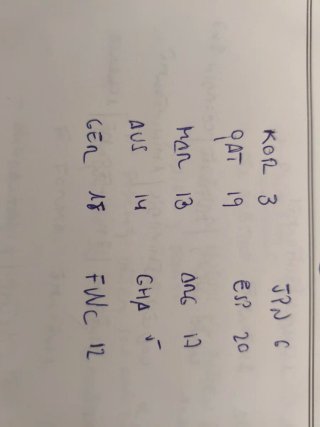 KOR 3 JPN 6
QAT 19 ESP 20
MAR 13 ARG 17
AUS 14 GHA 5
GER 18 FWC 12